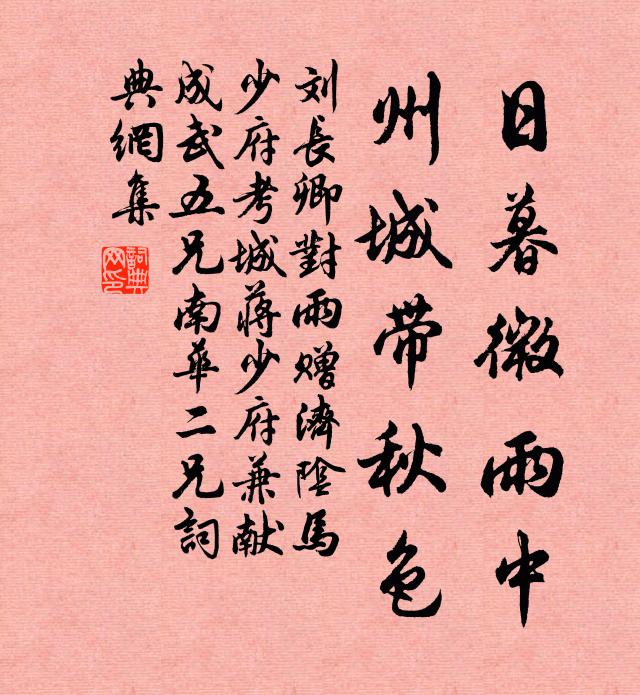 日暮微雨中
州城带秋色
刘长卿對雨赠濟陰馬
少府考城蒋少府兼献
成武五兄南華二兄詞
典網集
詞典
网印